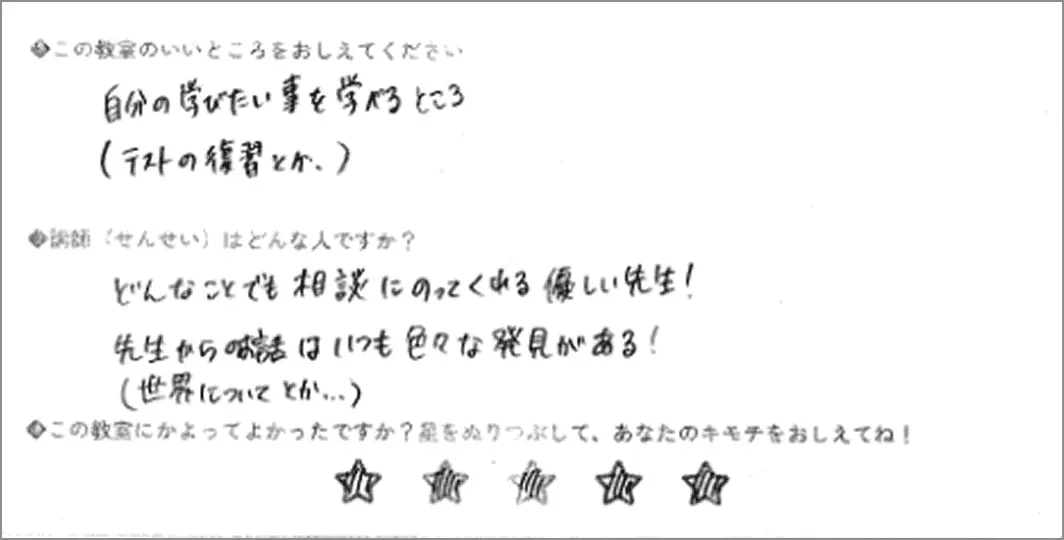 ◆この教室のいいところをおしえてください
自分の学びたい事を学べるところ
(テストの復習とか、)
◆講師（せんせい）はどんな人ですか？
どんなことでも相談にのってくれる優しい先生!
先生からのお話はいつも色々な発見がある!
(世界についてとか...)
◆この教室にかよってよかったですか？星をぬりつぶして、あなたのキモチをおしえてね！